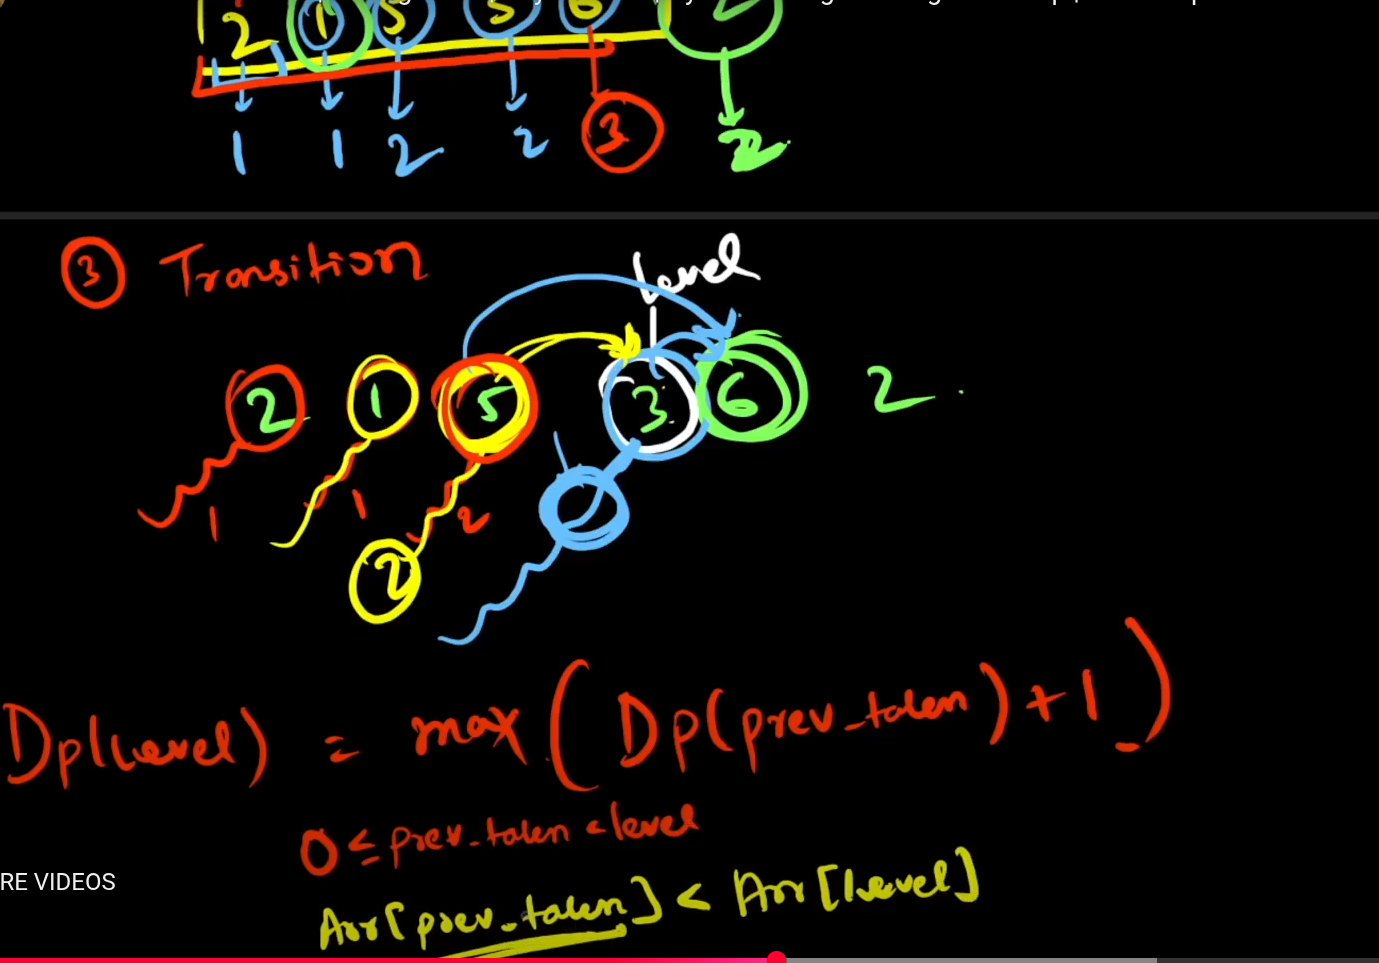 2 1 5 3 6 2
1 1 2 2 3 2
3 Transition
level
2 1 5 3 6 2
1 1 2
2
Dp(level) = max(Dp(prev_taken)+1)
0 ≤ prev_taken < level
Arr[prev_taken] < Arr[level]
RE VIDEOS